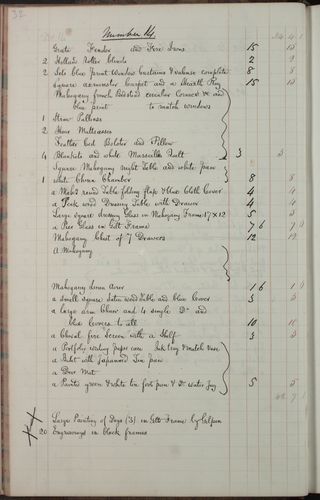 32
Number 14
Grate Fender and Fire Irons 15 15
2 Holland Roller blinds 2 2
2 Sets blue print Window Curtains & valance complete 8 8
Square axminster carpet and a Hearth Rug 15 15
Mahogany french Bedstead circular Corners &c and
blue print to match windows
1 Straw Palliass
2 Hair Mattrasses
Feather bed Bolster and Pillow
4 Blankets and white Marseilles Quilt 3 3
Square Mahogany night Table and white pan
1 white China Chamber 8 8
a Mah'y round Table folding flap & blue cloth Cover 4 4
a Pink wood Dressing Table with Drawer 4 4
Large square dressing Glass in Mahogany Frame 17 x 12 5 5
a Pier Glass in Gilt Frame 7 6 7 6
Mahogany Chest of 7 Drawers 12 12
A Mahogany
Mahogany linen airer 1 6 1 6
a small square Satin wood Table and blue Cover 3 3
a large arm Chair and 12 single Do and
blue Covers to all 10 10
a Cheval fire Screen with a Shelf 3 3
a Portfolio writing paper case Ink tray & match Vase
a Toilet with Japanned Tin pan
a Door Mat
a Painted green & white tin foot pan & Do water Jug 5 5
Large Painting of Dogs (3) in Gilt Frame by Gilpin
20 Engravings in black frames